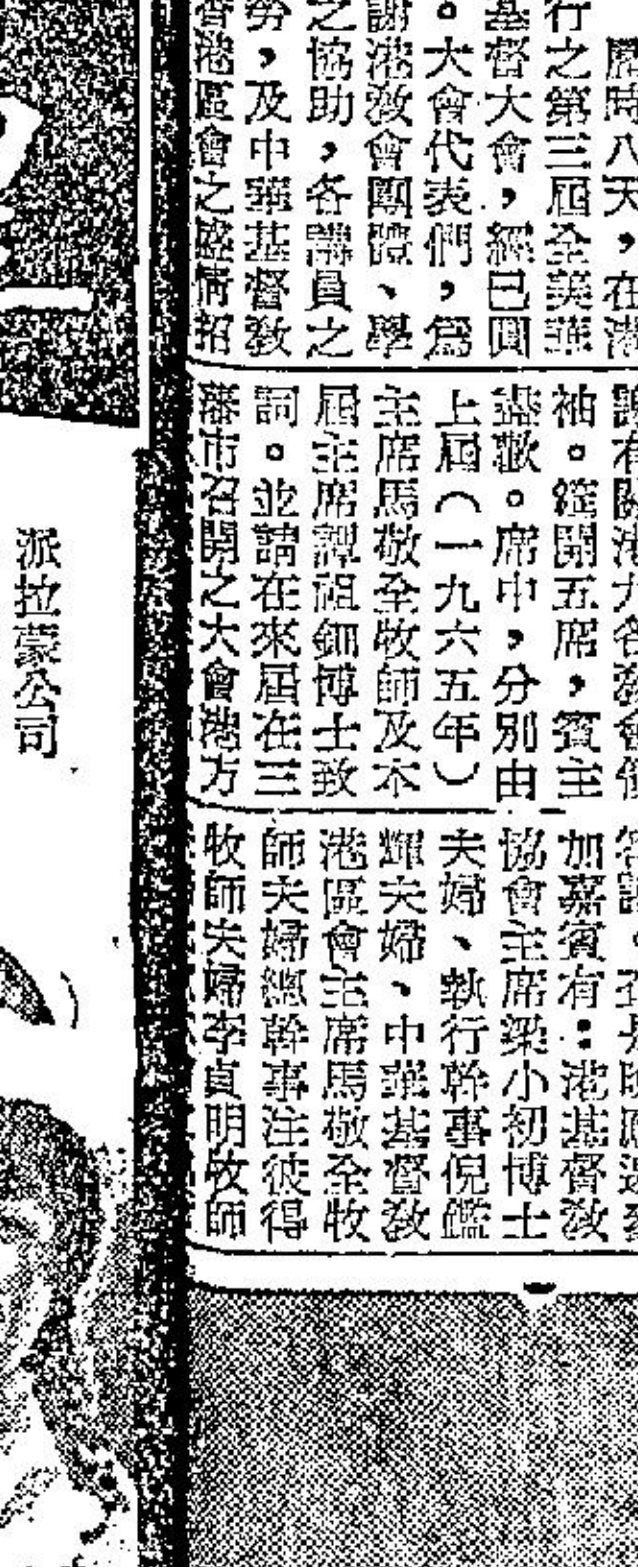 歷時八天，在港
行之第三屆全美華
基督大會，經已圓
。大會代表們，爲
謝港敎會團體、學
之協助，各講員之
勞，及中華基督敎
香港區會之盛情招
袖。筵開五席，賓主
盡歡。席中，分別由
上屆（一九六五年）
主席馬敬全牧師及本
屆主席譚祖鈿博士致
詞。並請在來屆在三
藩市召開之大會港方
加嘉賓有：港基督敎
協會主席梁小初博士
夫婦、執行幹事倪鑑
輝夫婦、中華基督敎
港區會主席馬敬全牧
師夫婦總幹事汪彼得
牧師夫婦李貞明牧師
派拉蒙公司